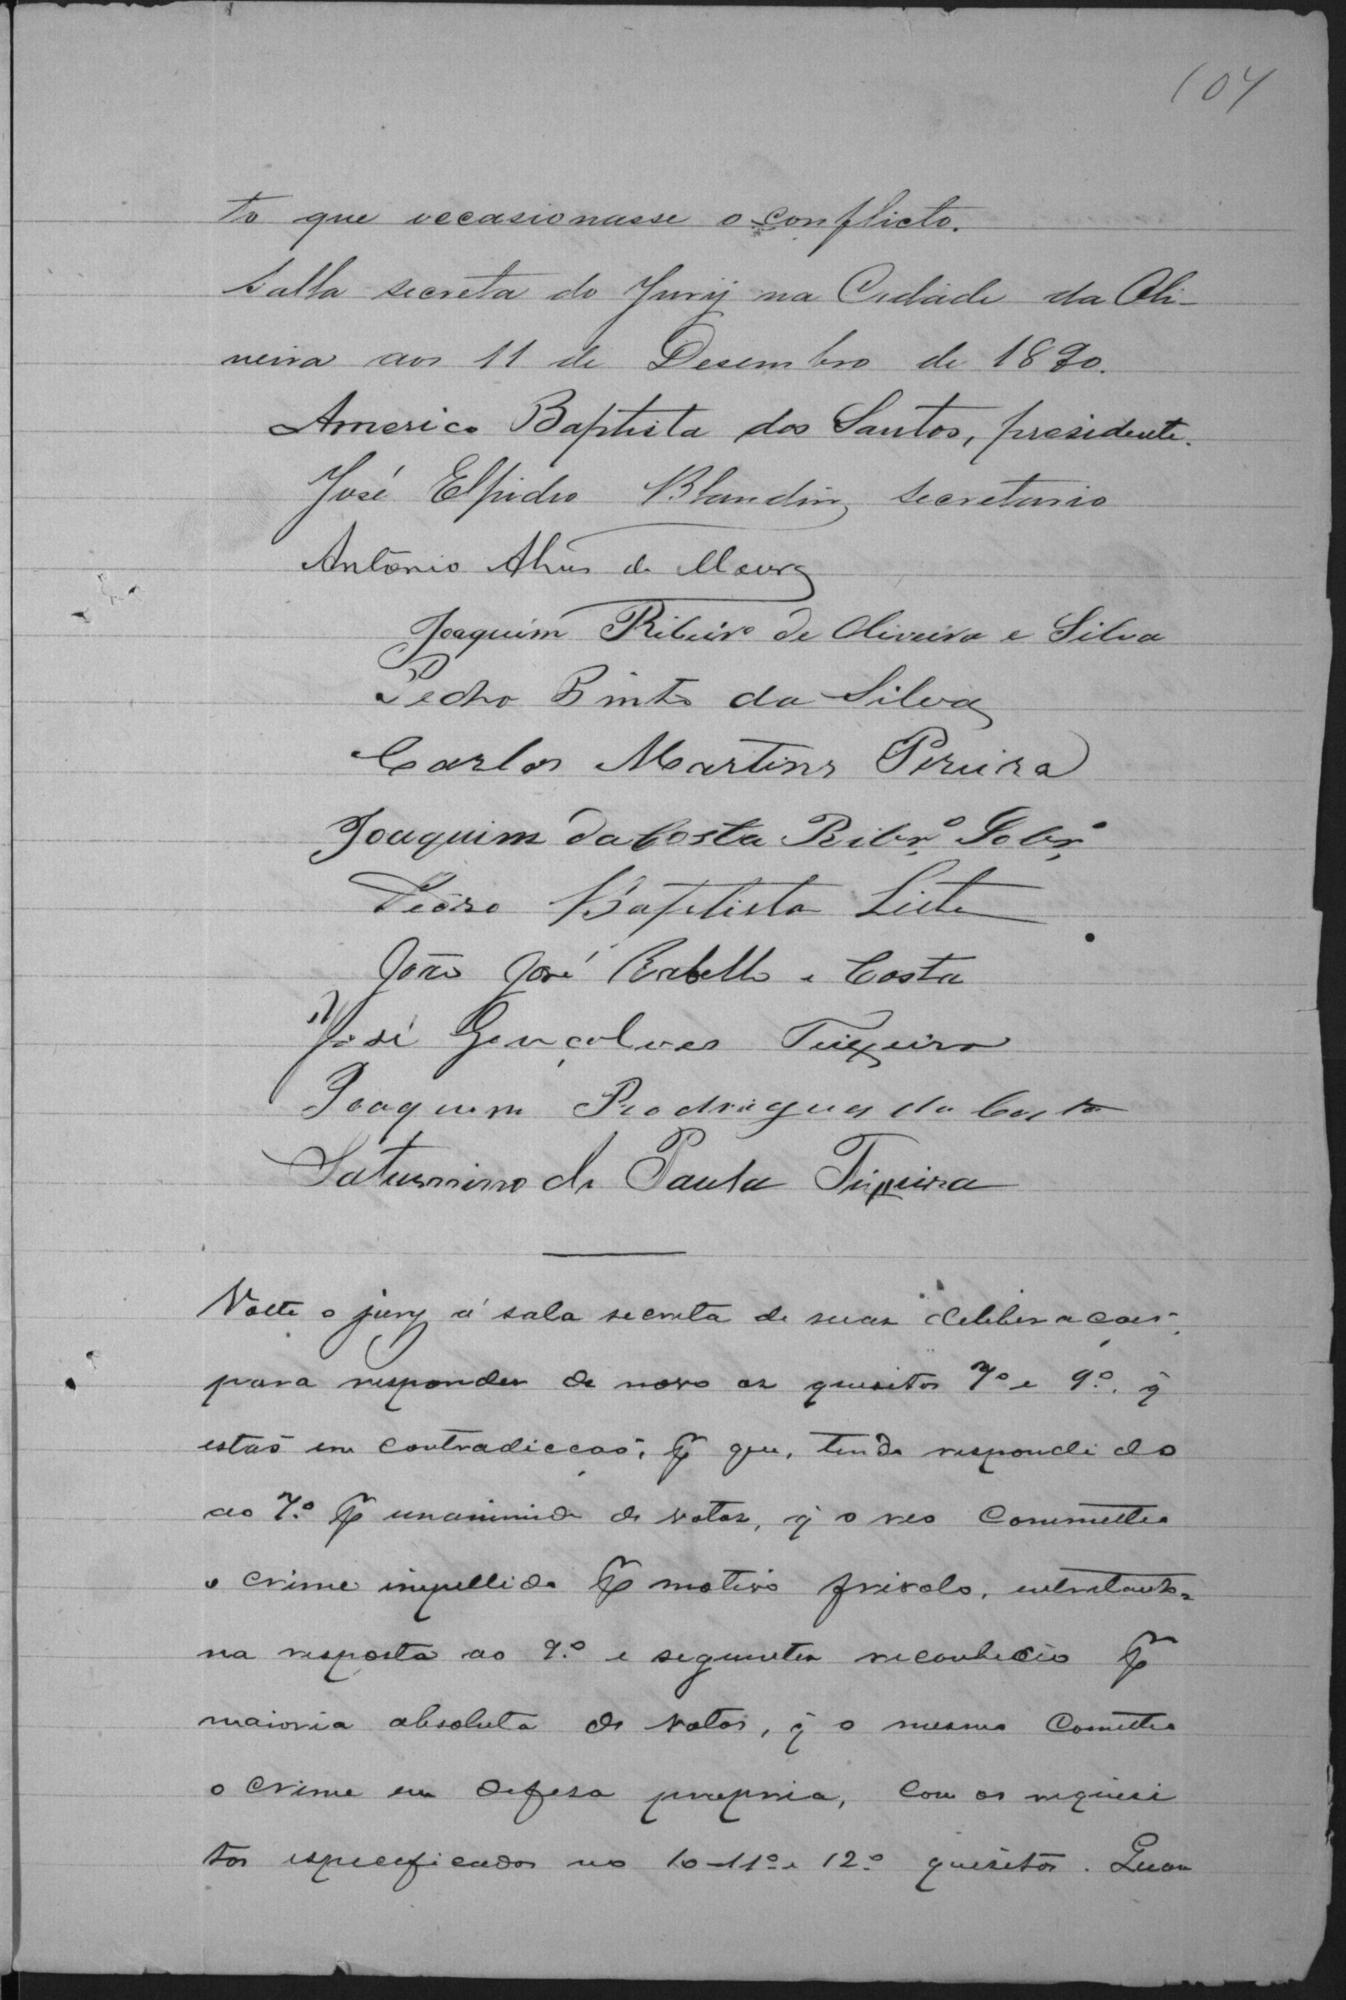 104
to que occasionasse o conflicto.
Salla secreta do Jury na Cidade da Oli-
veira aos 11 de Desembro de 1890.
Americo Baptista dos Santos, presidente.
José Elpidio Blandin, secretario
Antonio Alves de Moura
Joaquim Ribeiro de Oliveira e Silva
Pedro Pinto da Silva
Carlos Martins Pereira
Joaquim da Costa Ribrº Sobrº
Pedro Baptista Leite
João José Rabello e Costa
José Gonçalves Teixeira
Joaquim Rodrigues da Costa
Saturnino de Paula Teixeira
Volte o jury á sala secreta de suas deliberações,
para responder de novo os quesitos 7º e 9º. q̃
estaõ em contradiccaõ; p̃ que, tendo respondido
ao 7.º p̃ unanimide de votos, q̃ o reo commetteo
o crime impellido p̃ motivo frivolo, entretanto
na resposta ao 9.º e seguintes reconheceo p̃
maioria absoluta de votos, q̃ o mesmo cometteo
o crime em defesa propria, com os requisi
tos especificados no 10-11º e 12.º quesitos. Quan